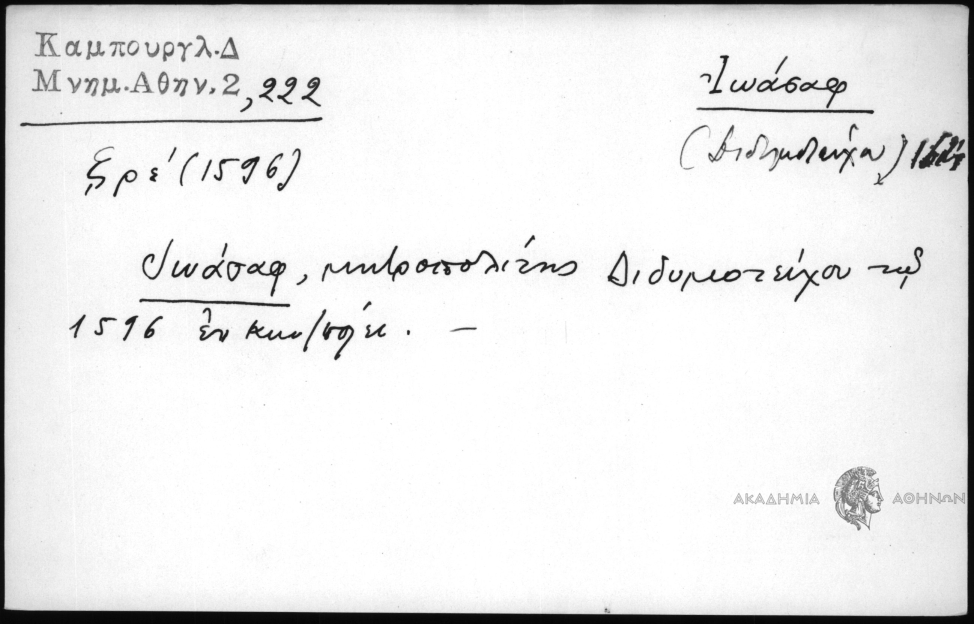 Καμπουργλ.Δ
Μνημ.Αθην.2,222
Ἰωάσαφ
(Διδυμοτείχου)
ξρέ (1596)
Ἰωάσαφ, μητροπολίτης Διδυμοτείχου τῷ
1596 ἐν Κων/πόλει. —
ΑΚΑΔΗΜΙΑ ΑΘΗΝΩΝ